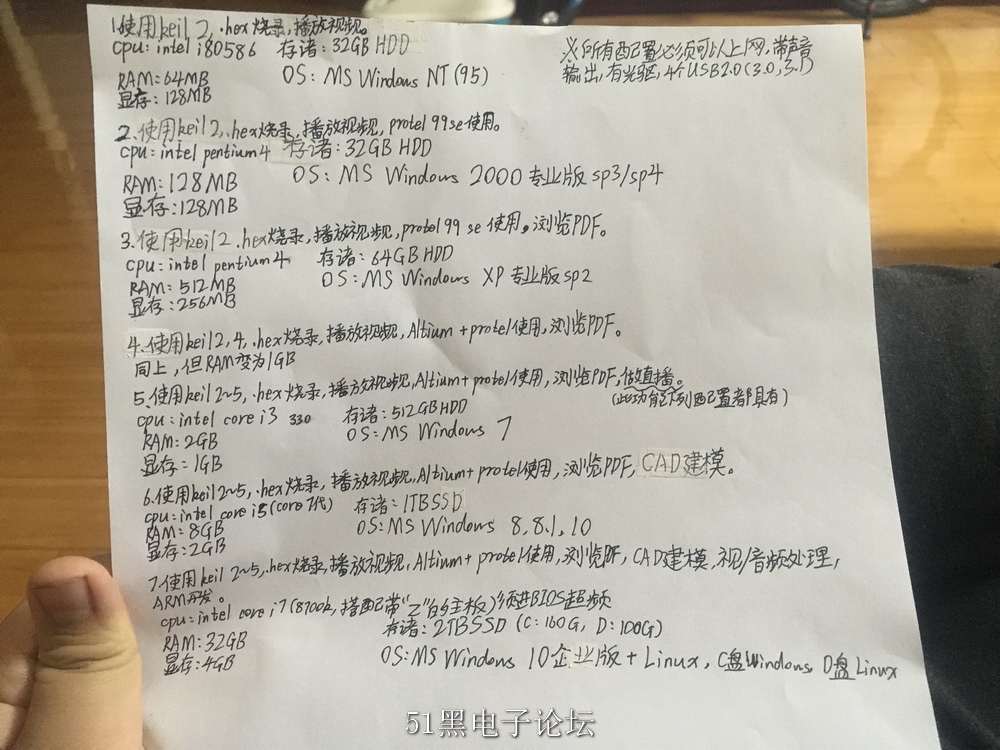 1.使用keil 2,.hex烧录,播放视频。
cpu: intel i80586 存诸: 32GB HDD
RAM: 64MB OS: MS Windows NT(95)
显存: 128MB
※所有配置必须可以上网,带声音
输出,有光驱,4个USB2.0(3.0,3.1)
2.使用keil 2,.hex烧录,播放视频,protel 99se使用。
cpu: intel pentium4 存诸: 32GB HDD
RAM: 128MB OS: MS Windows 2000 专业版 sp3/sp4
显存: 128MB
3.使用keil 2 .hex烧录,播放视频,protel 99 se 使用,浏览PDF。
cpu: intel pentium4 存诸: 64GB HDD
RAM: 512MB OS: MS Windows XP 专业版 sp2
显存: 256MB
4.使用keil 2,4,.hex烧录,播放视频,Altium+protel使用,浏览PDF。
同上,但RAM变为1GB
5.使用keil 2~5,.hex烧录,播放视频,Altium+protel使用,浏览PDF,做直播。
(此功能下列配置都具有)
cpu: intel core i3 330 存诸: 512GB HDD
RAM: 2GB OS: MS Windows 7
显存: 1GB
6.使用keil 2~5,.hex烧录,播放视频,Altium+protel使用,浏览PDF,CAD建模。
cpu: intel core i5(core 7代) 存诸: 1TBSSD
RAM: 8GB OS: MS Windows 8,8.1,10
显存: 2GB
7.使用keil 2~5,.hex烧录,播放视频,Altium+protel使用,浏览PDF,CAD建模,视/音频处理,
ARM开发。
cpu: intel core i7(8700k,搭配带“Z”的主板)须进BIOS超频
RAM: 32GB 存诸: 2TBSSD (C: 160G, D: 100G)
显存: 4GB OS: MS Windows 10企业版+Linux, C盘Windows, D盘Linux
51黑电子论坛